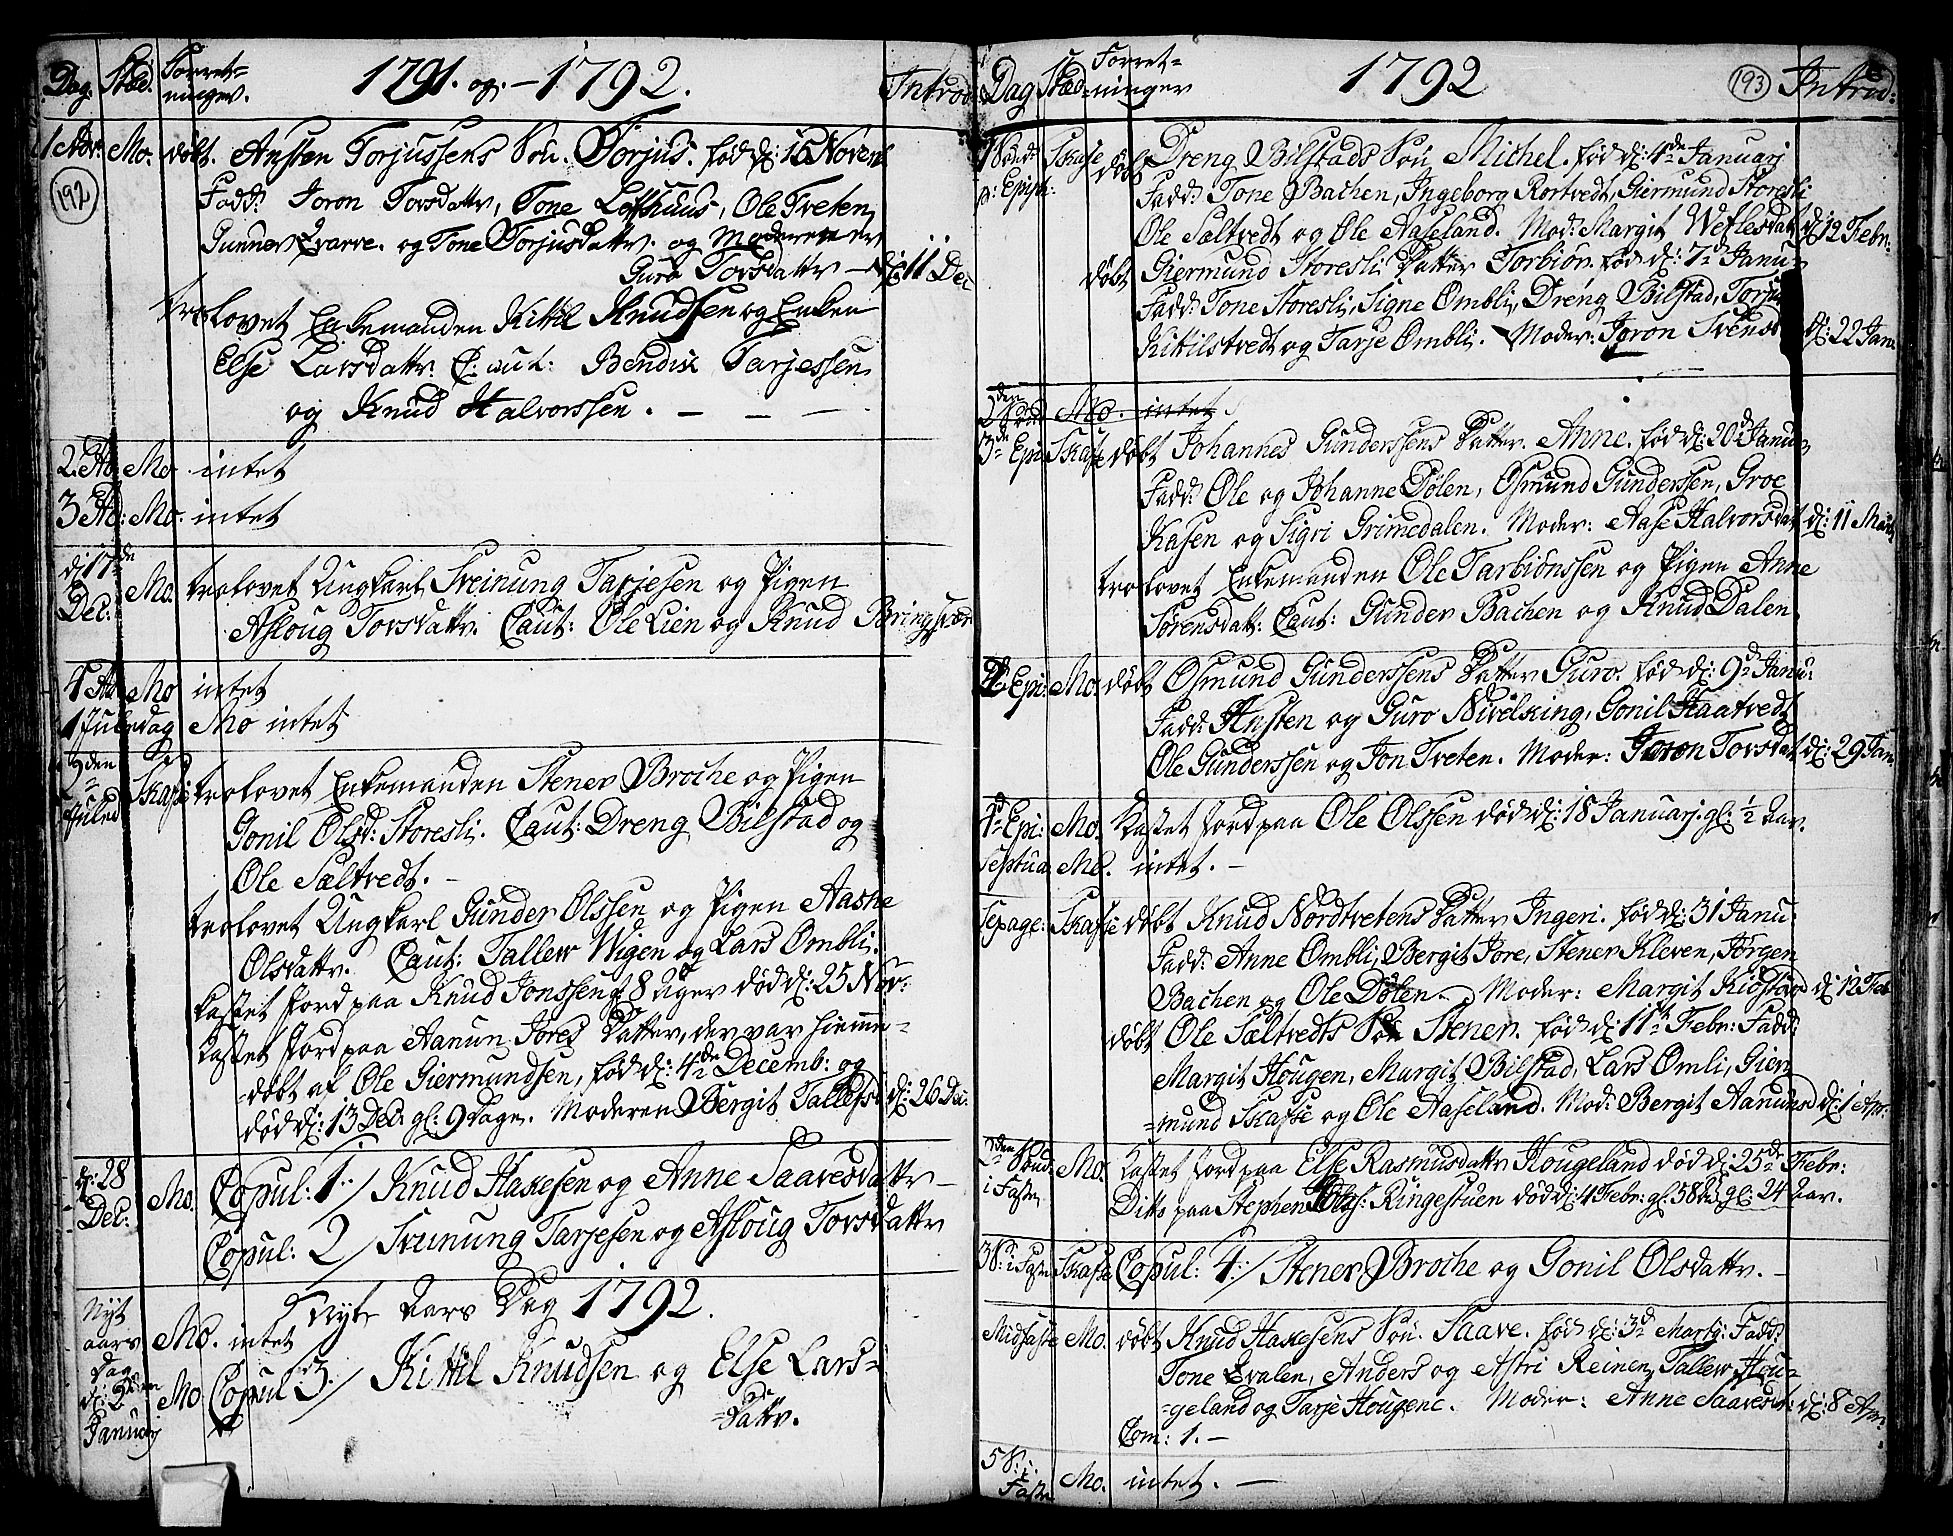 Dag. Sted. Forret-
ninger. 1791. og. - 1792. Introd
1 Adv: Mo. døbt. Ansten Torjussens Søn. Torjus. fød d: 15 Novemb
192
Fadd: Joron Torsdattr, Tone Lofthuus, Ole Treten,
Gunner Qvarve. og Tone Torjusdattr. og Moderen er
Guro Torsdattr — d: 11 Dec
trolovet Enkemanden Kittil Knudsen og Enken
Else Larsdattr. C: aut: Bendix Tarjessen
og Knud Halvorssen. — — —
2. Ad: Mo intet
3 Ad: Mo. intet
d: 17de
Dec: Mo. trolovet Ungkarl Sveinung Tarjesen og Pigen
Asloug Torsdattr. Caut: Ole Lien og Knud Bringsvær
4 Ad: Mo intet
1 Juledag Mo intet
2den
Juled Skafse trolovet Enkemanden Stener Broche og Pigen
Gonil Olsd: Storesli. Caut: Dreng Bilstad og
Ole Sæltvedt. —
trolovet Ungkarl Gunder Olssen og Pigen Aashe
Olsdattr. Caut: Tallew Wigen og Lars Ombli.
kastet Jord paa Knud Jonssen gl 8 Uger død d: 25 Nov:
kastet Jord paa Aanun Jores Datter, der var hiemme-
døbt af Ole Giermundsen, fød d: 4de Decemb: og
død d: 13 Dec: gl: 9 Dage. Moderen Bergit Tallefsd d: 26 Dec.
d: 28
Dec: Mo. Copul: 1./ Knud Haxesen og Anne Saavesdattr —
Copul: 2/ Svunung Tarjesen og Asloug Torsdattr
Nyt Aars Dag 1792.
Nyt
aars
Dag Mo. intet
d: 2den
Januarj Mo Copul 3./ Kittil Knudsen og Else Lars-
-Dattr.
Dag Sted Forret-
-ninger 1792 193 Introd:
1 Sønd:
p: Epiph: Skafse døbt Dreng Bilstads Søn Michel. fød d: 4de Januarj
Fadd: Tone Bachen, Ingeborg Rortvedt, Giermund Storesli
Ole Sæltvedt og Ole Aaseland. Mod: Margit Weflesdat d: 12 Febr:
døbt Giermund Storesli Datter Torbiør. fød d: 7d Janu-
Fadd: Tone Storesli, Signe Ombli, Dreng Bilstad, Torju
Kitilstvedt og Tarje Ombli. Moder: Joron Svensd d: 22 Jan
2den Sønd Mo. intet
3de Epi Skafse døbt Johannes Gunderssens Datter. Anne. fød d: 20d Janu-
Fadd: Ole og Johanne Dølen, Osmund Gunderssen, Groe
Kasen og Sigri Grimedalen. Moder: Aase Halvorsdat d: 11 Marti
trolovet Enkemanden Ole Tarbiønssen og Pigen Anne
Sørensdatt: Caut: Gunder Bachen og Knud Dalen.
Epi: Mo. døbt Osmund Gunderssens Datter Guro. fød d: 9d Janu:
Fadd: Ansten og Guro Nivelking, Gonil Haatvedt
Ole Gunderssen og Jon Treten. Moder: Joron Torsdat d: 29 Jan
4d Epi: Mo. kastet Jord paa Ole Olssen død d: 18 Januarj. gl: ½ Aar.
Septua Mo. intet. —
Sexage: Skafse døbt Knud Nordtvetens Datter Ingeri. fød d: 31 Janu:
Fadd: Anne Ombli, Bergit Jore, Stener Kleven, Jörgen
Bachen og Ole Dølen. Moder: Margit Kiøstad d: 12 Feb
døbt Ole Sæltvedts Søn Stener. fød d: 11te Febr: Fadd:
Margit Hougen, Margit Bilstad, Lars Omli, Gier
-mund Skafse og Ole Aaseland. Mod: Bergit Aanunsd d: 1 Apr:
2den Sønd:
i Fasten Mo. kastet Jord paa Else Rasmusdattr Hougeland død d: 25de Febr:
Ditto paa Stephen Olss: Ringestuen død d: 4 Febr: gl: 58 gl: 24 Aar.
3 S: i Faste Skafse Copul: 4./ Stener Broche og Gonil Olsdattr. —
Midfaste Mo. døbt Knud Haxesens Søn. Saave. fød d: 3d Martj: Fadd:
Tone Evalen, Anders og Astri Reinen, Tallew Hou-
-geland og Tarje Hougene. Moder: Anne Saavesdt: d: 8 Apr:
Com: 1. —
5 S: i
Faste Mo. intet. —